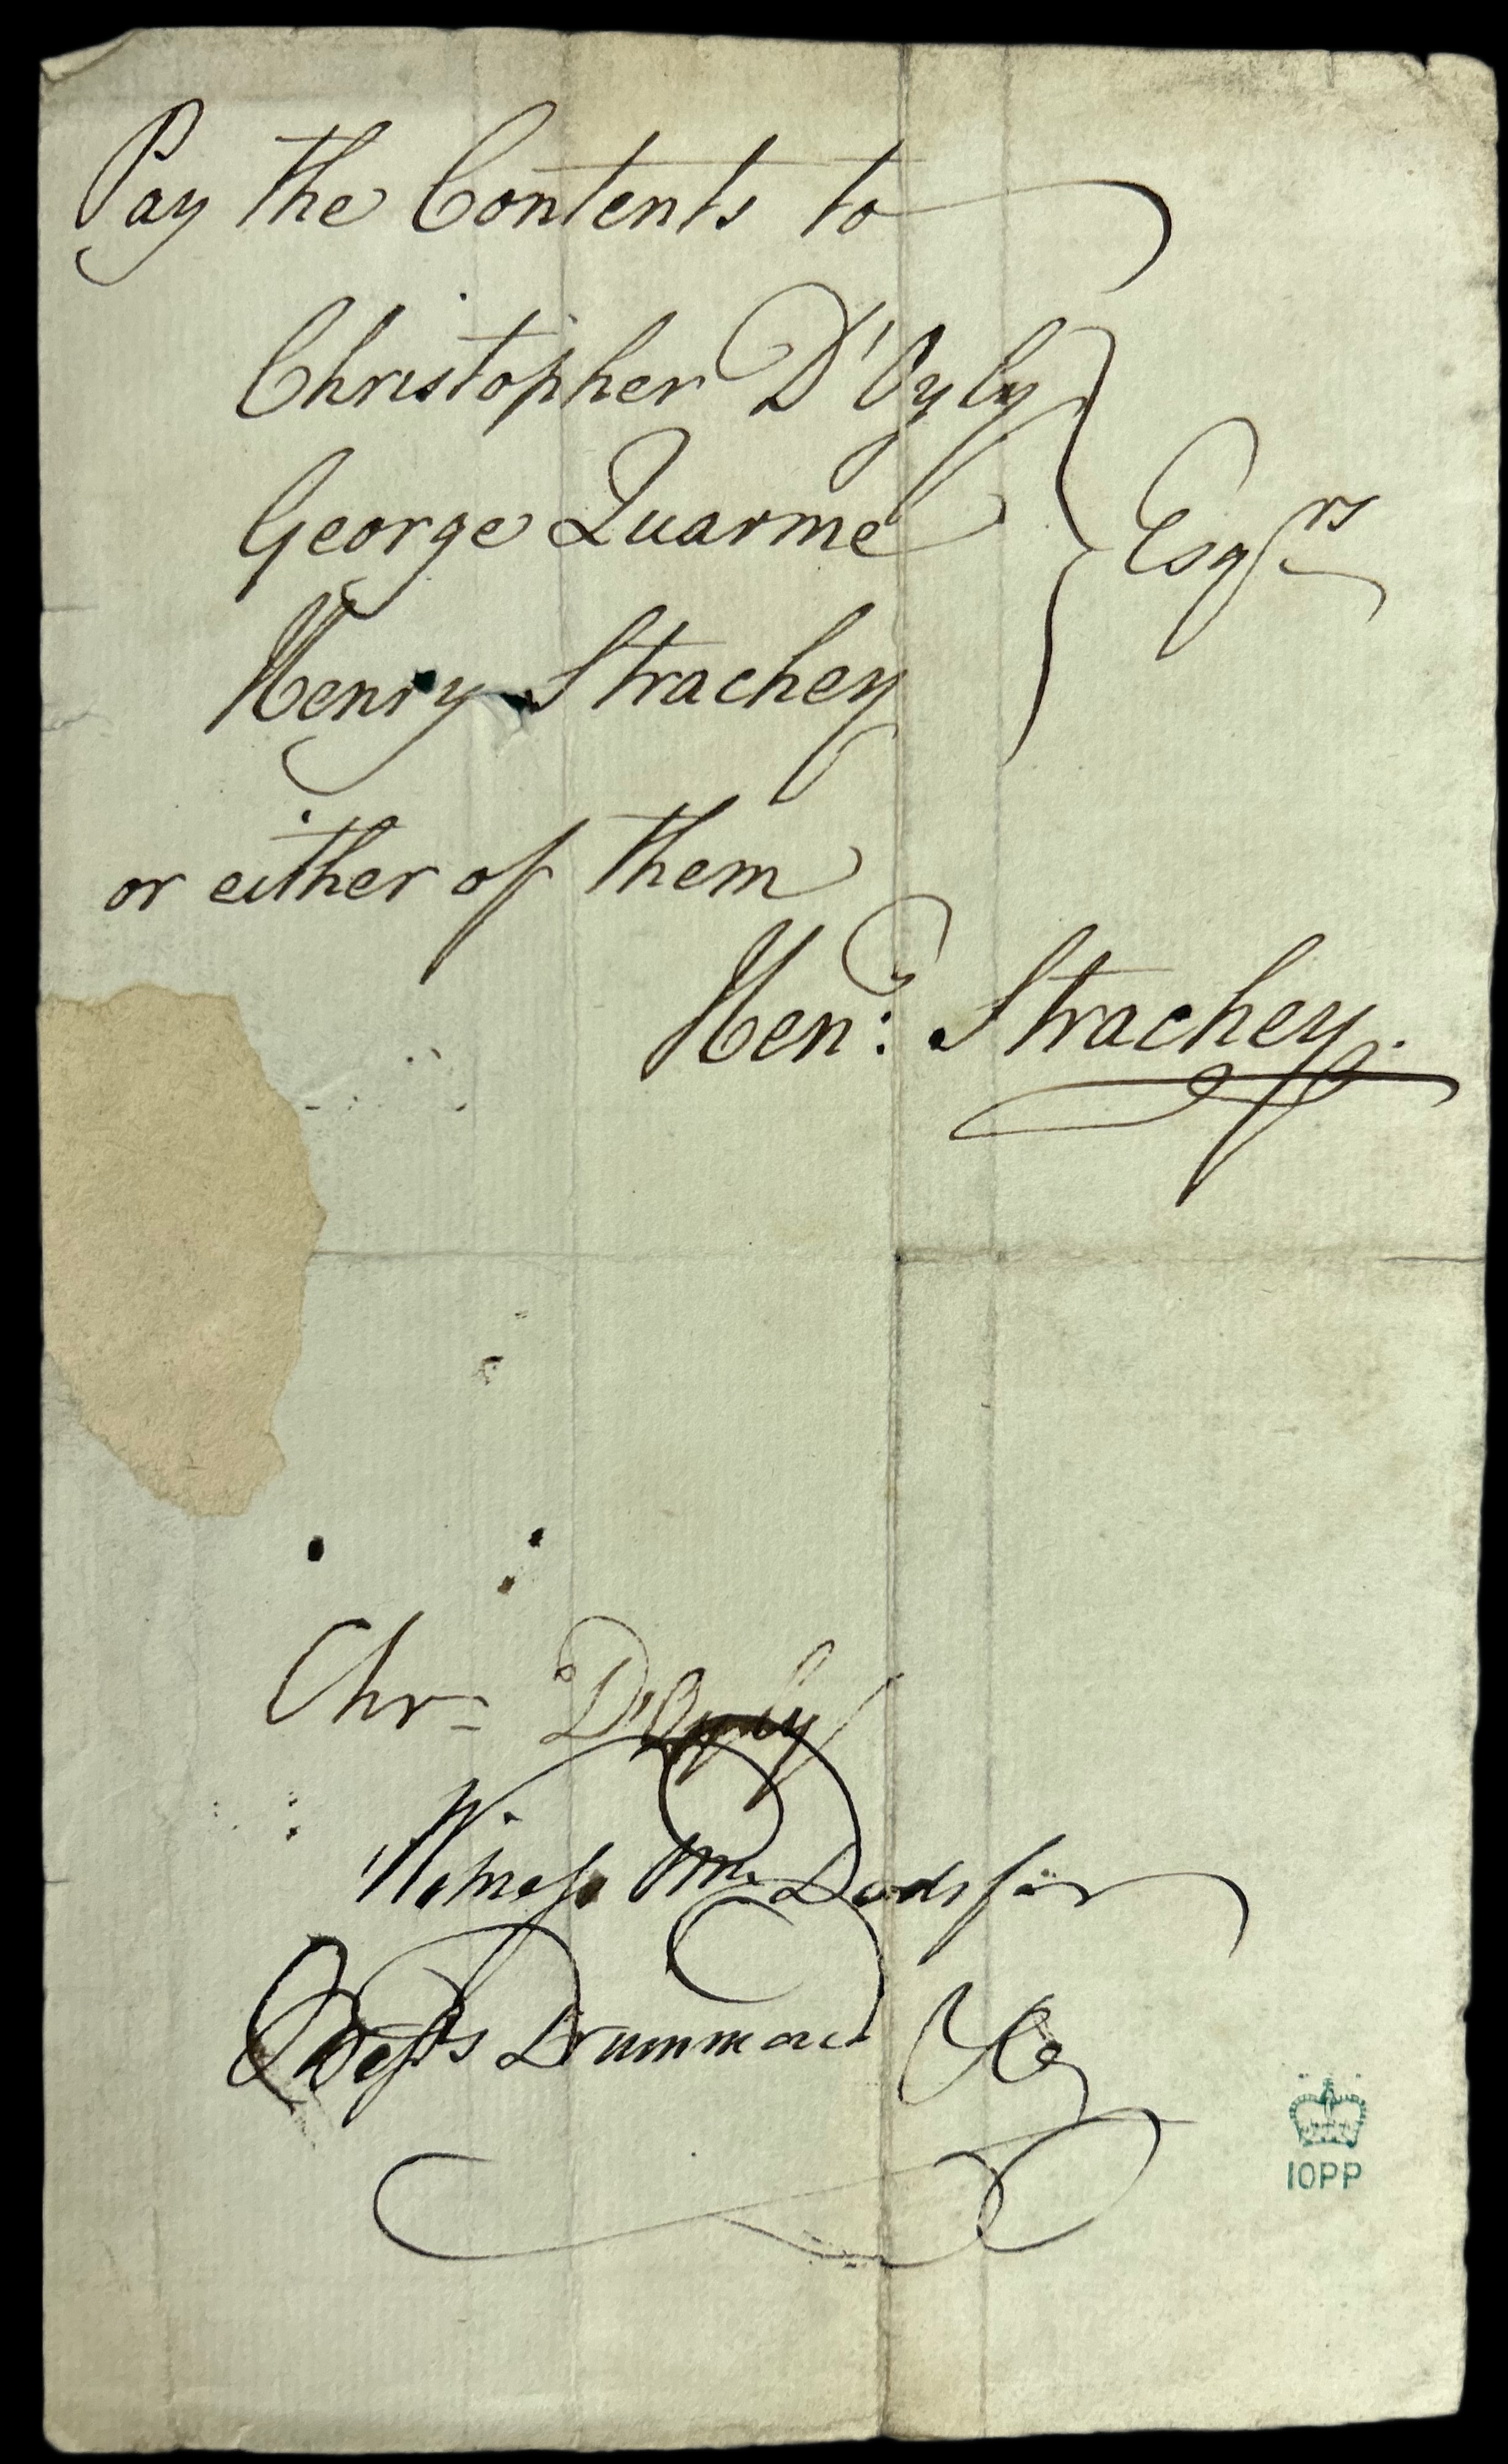 Pay the Contents to
Christopher D'Oyly
George Quarme
Henry Strachey
Esqrs
or either of them
Heny: Strachey.
Chr= D'Oyly
Witness Wm. Dodsfor
Messrs Drummond & Co
IOPP